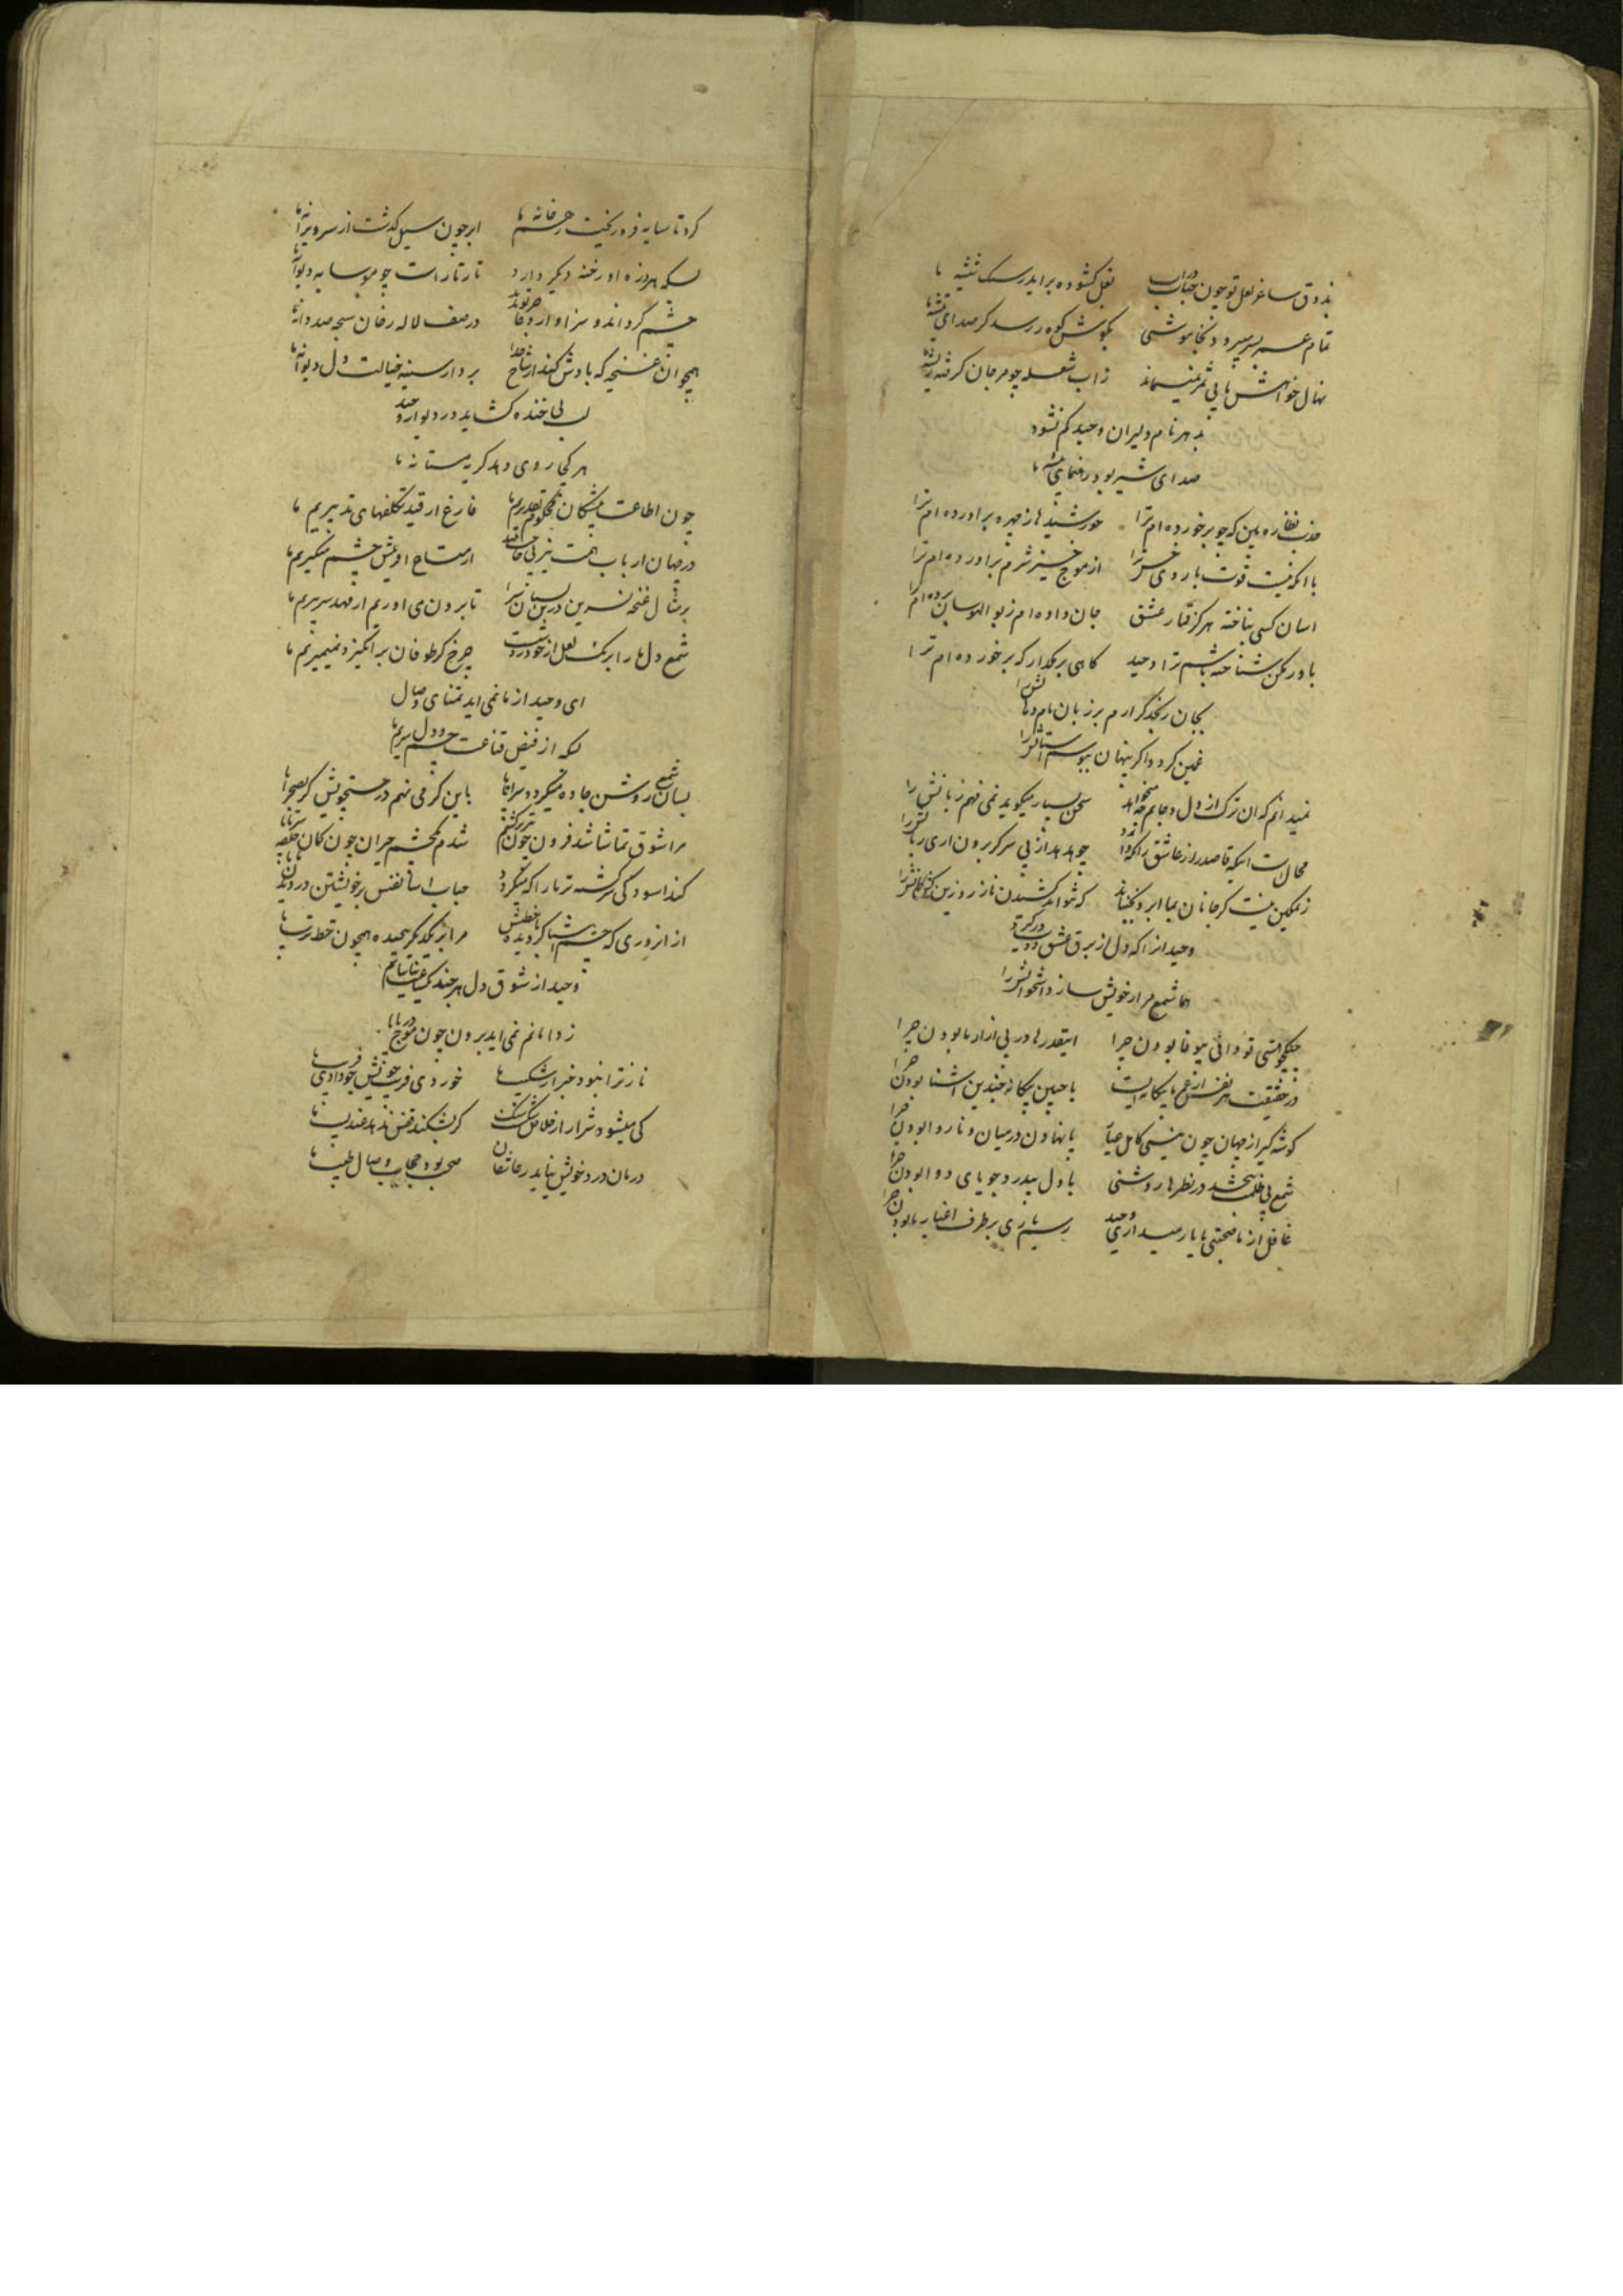 بذوق ساغر لعل تو چون حباب شراب بغل کشوده براید ز سنک شیشه ما
تمام عمر بسر میرود بخاموشی بکوش کوه رسد کر صدای تیشه ما
نهال خواهش ما بی ثمر نمیماند ز اب شعله چو مرجان کرفته ریشه ما
بهر نام دلیران وحید کم نشود
صدای شیر بود رهنمای بیشه ما
نظاره بین که چو برخورده ام ترا خورشید ها ز چهره براورده ام ترا
با انکه نیست قوت بازوی خسرو از موج خیز شرم براورده ام ترا
اسان کسی نباخته هرکز قمار عشق جان داده ام ز بوالهوسان برده ام ترا
باور مکن شناخته باشم ترا وحید کاهی بر بکدار که برخورده ام ترا
بجان رنجد کر ارم بر زبان نام دهانش را
غمین کردد اکر پنهان ببوسم استانش را
نمیدانم که ان ترک از دل و جانم چه میخواهد سخن بسیار میکوید نمی فهم زبانش را
محال است اینکه قاصد راز عاشق را نکهدارد چو بدهد از پی سر کر برون اری زبانش را
ز تمکین نیست کر جانان بما ابرو نجنباند که نتواند کشیدن ناز زور زین کمانش را
وحید از انکه دل از برق عشق او در کیرد
هما شمع مزار خویش سازد استخوانش را
جنکجو هستی تو دانی بیوفا بودن چرا اینقدرها در پی ازار ما بودن چرا
در حقیقت هر نفس از غم ما بیکانه ایست با چنین بیکانه چندین اشنا بودن چرا
کوشه کیر از جهان چون نیستی کامل حیا پا نهادن در میان و ناروا بودن چرا
شمع بی ظلمت نبخشد در نظرها روشنی با دل بیدرد جویای دوا بودن چرا
غافل از ما صحبتی با یار میداری وحید رسم یاری بر طرف اغیار ما بودن چرا
کرد تا سایه فرو ریخت ز هم خانه ما ابر چون سیل کذشت از سر ویرانه ما
بسکه هر ذره او رخنه دیکر دارد تار تار است چو مو سایه دیوانه ما
چشم کرداند و سزاوار دعا هر توبند در صف لاله رخان سبحه صد دانه ما
همچو ان غنچه که بادش کند از شاخ جدا بر دار سینه خیالت دل دیوانه ما
لب بی خنده کشاید در دیوار وحید
هر کجا روی دهد کریه مستانه ما
چون اطاعت پیشکان محکوم تقدیریم ما فارغ از قید تکلفهای تدبیریم ما
در جهان ارباب همت نیز بی حاجت نیند از متاع او عیش چشم میکیریم ما
بر مثال غنچه نسرین درین بستان سرا تا برون می اوریم از مهد سر پیریم ما
شمع دل ها را بر یک لعل از خود روشنست چرخ کر طوفان بر انکیزد نمیمیریم ما
ای وحید از ما نمی اید تمنای وصال
بسکه از فیض قناعت چشم و دل سیریم ما
بسان شمع روشن جاده میکردد سراپا باین کرمی نهم در جستجویش کر بصحرا پا
مرا شوق تماشا شد فزون چون شدم یک چشم حیران چون کمان حلقه سر تا پا
کند اسودکی سرکشته تر ما را که میکردد حباب اسا نفس بر خویشتن دزدیدن
از ان روزی که چشم اشنا کردیده با خطش مرا بر یکدیکر پیچیده همچون خط ترسا پا
وحید از شوق دل هر چند کمیاب
ز دامانم نمی اید برون چون موج دریا پا
نازترا نبود خبر از شکیب ها خوردی فریب خویش چو دادی فریب ها
کی میشود شرار از خلاص شکست سنک کر بشکند قفس ندهد عندلیب ها
درمان درد خویش نیابد ز عاشقان صحبت بود حجاب وصال طبیب ها